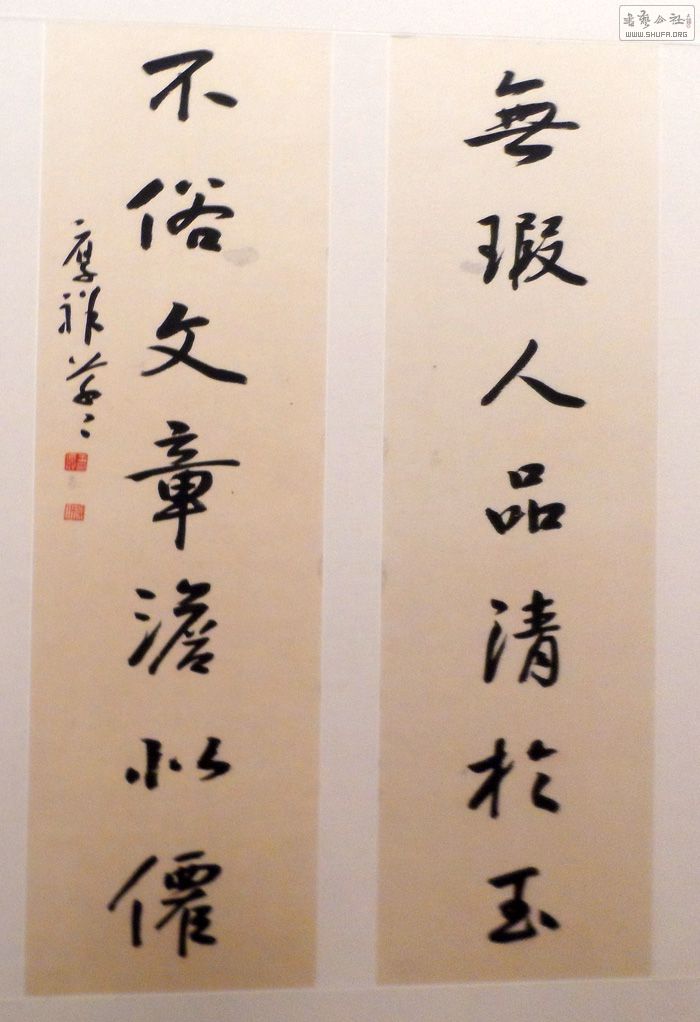 無瑕人品清於玉
不俗文章澹似僊
厚祥
書藝公社
WWW.SHUFA.ORG